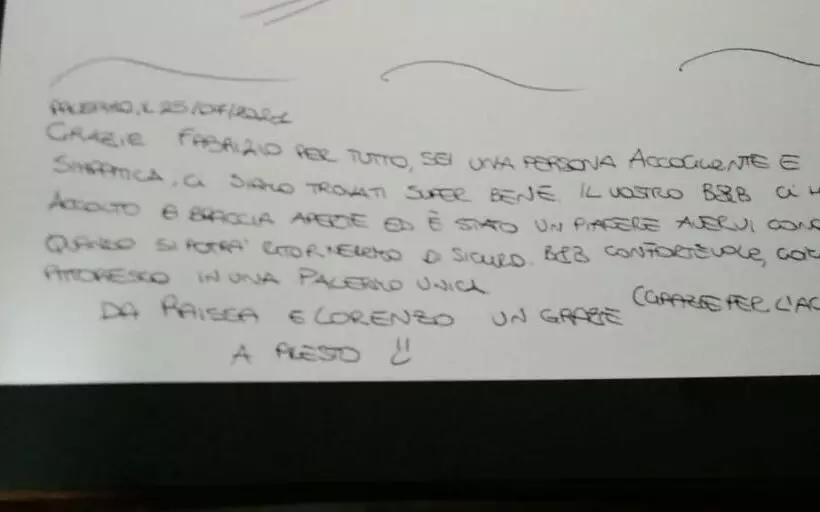 PALERMO, IL 25/07/2021
GRAZIE FABRIZIO PER TUTTO, SEI UNA PERSONA ACCOGLIENTE E
SIMPATICA, CI SIAMO TROVATI SUPER BENE. IL VOSTRO B&B CI
ACCOLTO A BRACCIA APERTE ED È STATO UN PIACERE AVERVI
QUANDO SI POTRÀ RITORNEREMO DI SICURO. B&B CONFORTEVOLE,
PITTORESCO IN UNA PALERMO UNICA
(GRAZIE PER L'AC
DA RAISSA E LORENZO UN GRAZIE
A PRESTO